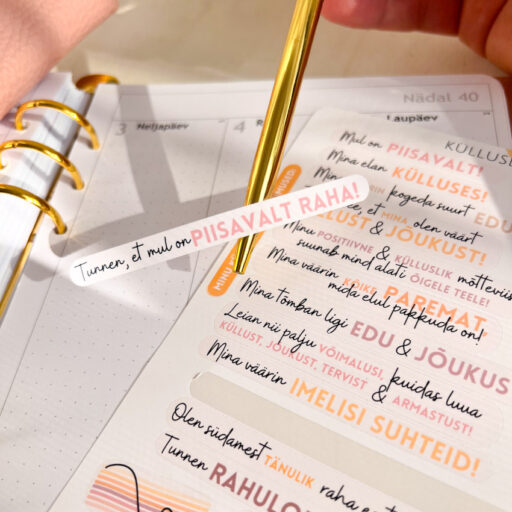 Nädal 40
3 Neljapäev
4
Laupäev
Tunnen, et mul on PIISAVALT RAHA!
KÜLLUSE
Mul on PIISAVALT!
Mina elan KÜLLUSES!
kogeda suurt EDU
et MINA olen väärt
& JÕUKUST!
Minu POSITIIVNE & KÜLLUSLIK mõtteviis
suunab mind alati ÕIGELE TEELE!
Mina väärin KÕIKE PAREMAT
mida elul pakkuda on!
Mina tõmban ligi EDU & JÕUKUS
Leian nii palju VÕIMALUSI, kuidas luua
KÜLLUST, JÕUKUST, TERVIST & ARMASTUST!
Mina väärin IMELISI SUHTEID!
Olen südamest TÄNULIK raha
Tunnen RAHULO